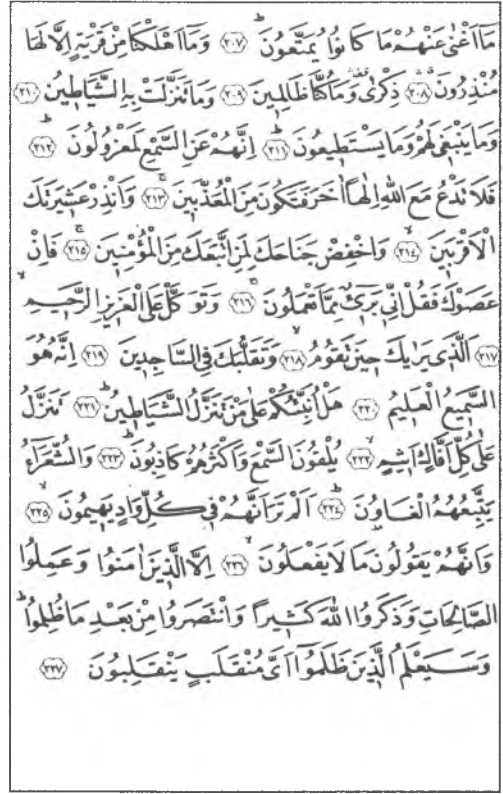 مَٓا اَغْنٰى عَنْهُمْ مَا كَانُوا يُمَتَّعُونَۜ ﴿٢٠٧﴾ وَمَٓا اَهْلَكْنَا مِنْ قَرْيَةٍ اِلَّا لَهَا
مُنْذِرُونَۗ ﴿٢٠٨﴾ ذِكْرٰى وَمَا كُنَّا ظَالِم۪ينَ ﴿٢٠٩﴾ وَمَا تَنَزَّلَتْ بِهِ الشَّيَاط۪ينُ ﴿٢١٠﴾
وَمَا يَنْبَغ۪ي لَهُمْ وَمَا يَسْتَط۪يعُونَۜ ﴿٢١١﴾ اِنَّهُمْ عَنِ السَّمْعِ لَمَعْزُولُونَۜ ﴿٢١٢﴾
فَلَا تَدْعُ مَعَ اللّٰهِ اِلٰهًا اٰخَرَ فَتَكُونَ مِنَ الْمُعَذَّب۪ينَۚ ﴿٢١٣﴾ وَاَنْذِرْ عَش۪يرَتَكَ
الْاَقْرَب۪ينَۙ ﴿٢١٤﴾ وَاخْفِضْ جَنَاحَكَ لِمَنِ اتَّبَعَكَ مِنَ الْمُؤْمِن۪ينَۚ ﴿٢١٥﴾ فَاِنْ
عَصَوْكَ فَقُلْ اِنّ۪ي بَر۪ٓيءٌ مِمَّا تَعْمَلُونَۚ ﴿٢١٦﴾ وَتَوَكَّلْ عَلَى الْعَز۪يزِ الرَّح۪يمِۙ
﴿٢١٧﴾ اَلَّذ۪ي يَرٰيكَ ح۪ينَ تَقُومُۙ ﴿٢١٨﴾ وَتَقَلُّبَكَ فِي السَّاجِد۪ينَ ﴿٢١٩﴾ اِنَّهُ هُوَ
السَّم۪يعُ الْعَل۪يمُ ﴿٢٢٠﴾ هَلْ اُنَبِّئُكُمْ عَلٰى مَنْ تَنَزَّلُ الشَّيَاط۪ينُۜ ﴿٢٢١﴾ تَنَزَّلُ
عَلٰى كُلِّ اَفَّاكٍ اَث۪يمٍۙ ﴿٢٢٢﴾ يُلْقُونَ السَّمْعَ وَاَكْثَرُهُمْ كَاذِبُونَۜ ﴿٢٢٣﴾ وَالشُّعَرَٓاءُ
يَتَّبِعُهُمُ الْغَاوُ۫نَۜ ﴿٢٢٤﴾ اَلَمْ تَرَ اَنَّهُمْ ف۪ي كُلِّ وَادٍ يَه۪يمُونَۙ ﴿٢٢٥﴾
وَاَنَّهُمْ يَقُولُونَ مَا لَا يَفْعَلُونَۙ ﴿٢٢٦﴾ اِلَّا الَّذ۪ينَ اٰمَنُوا وَعَمِلُوا
الصَّالِحَاتِ وَذَكَرُوا اللّٰهَ كَث۪يرًا وَانْتَصَرُوا مِنْ بَعْدِ مَا ظُلِمُواۜ
وَسَيَعْلَمُ الَّذ۪ينَ ظَلَمُٓوا اَيَّ مُنْقَلَبٍ يَنْقَلِبُونَ ﴿٢٢٧﴾